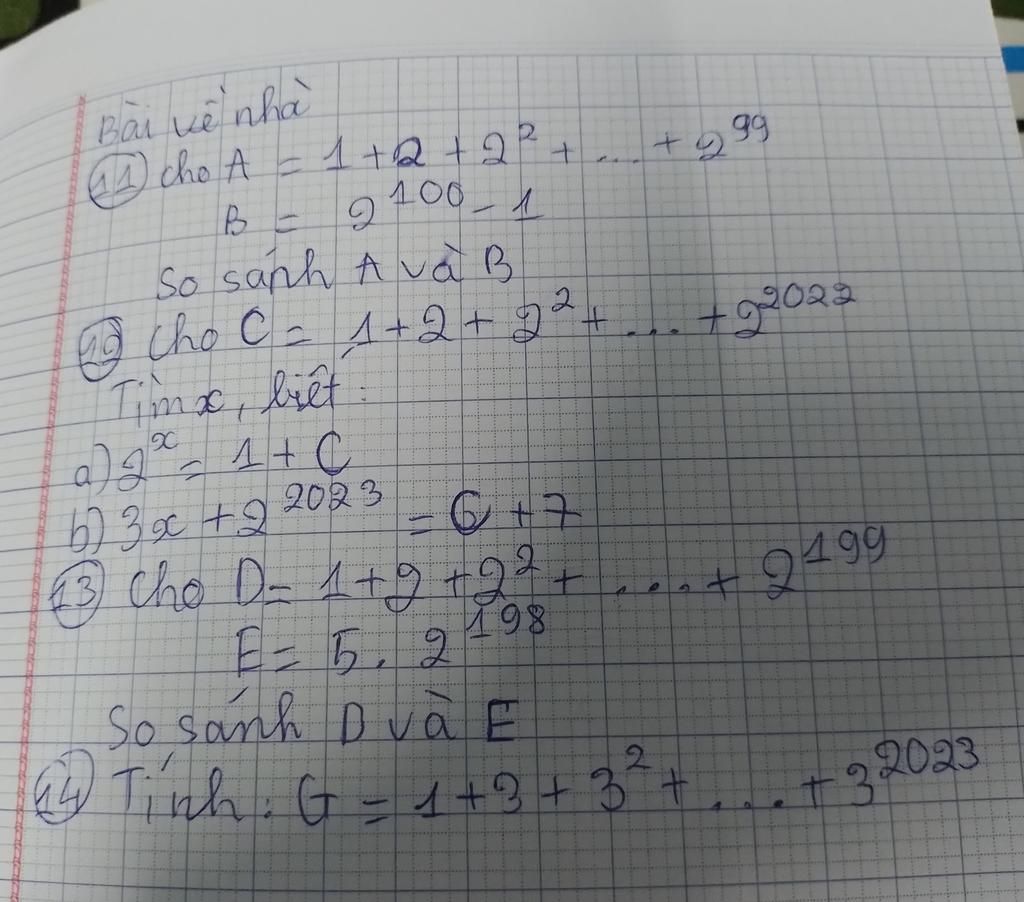 Bài về nhà
⑪ Cho A = 1 + 2 + 2² + ... + 2⁹⁹
B = 2¹⁰⁰ - 1
So sánh A và B
⑫ Cho C = 1 + 2 + 2² + ... + 2²⁰²²
Tìm x, biết:
a) 2ˣ = 1 + C
b) 3x + 2²⁰²³ = C + 7
⑬ Cho D = 1 + 2 + 2² + .... + 2¹⁹⁹
E = 5 . 2¹⁹⁸
So sánh D và E
⑭ Tính : G = 1 + 3 + 3² + .... + 3²⁰²³